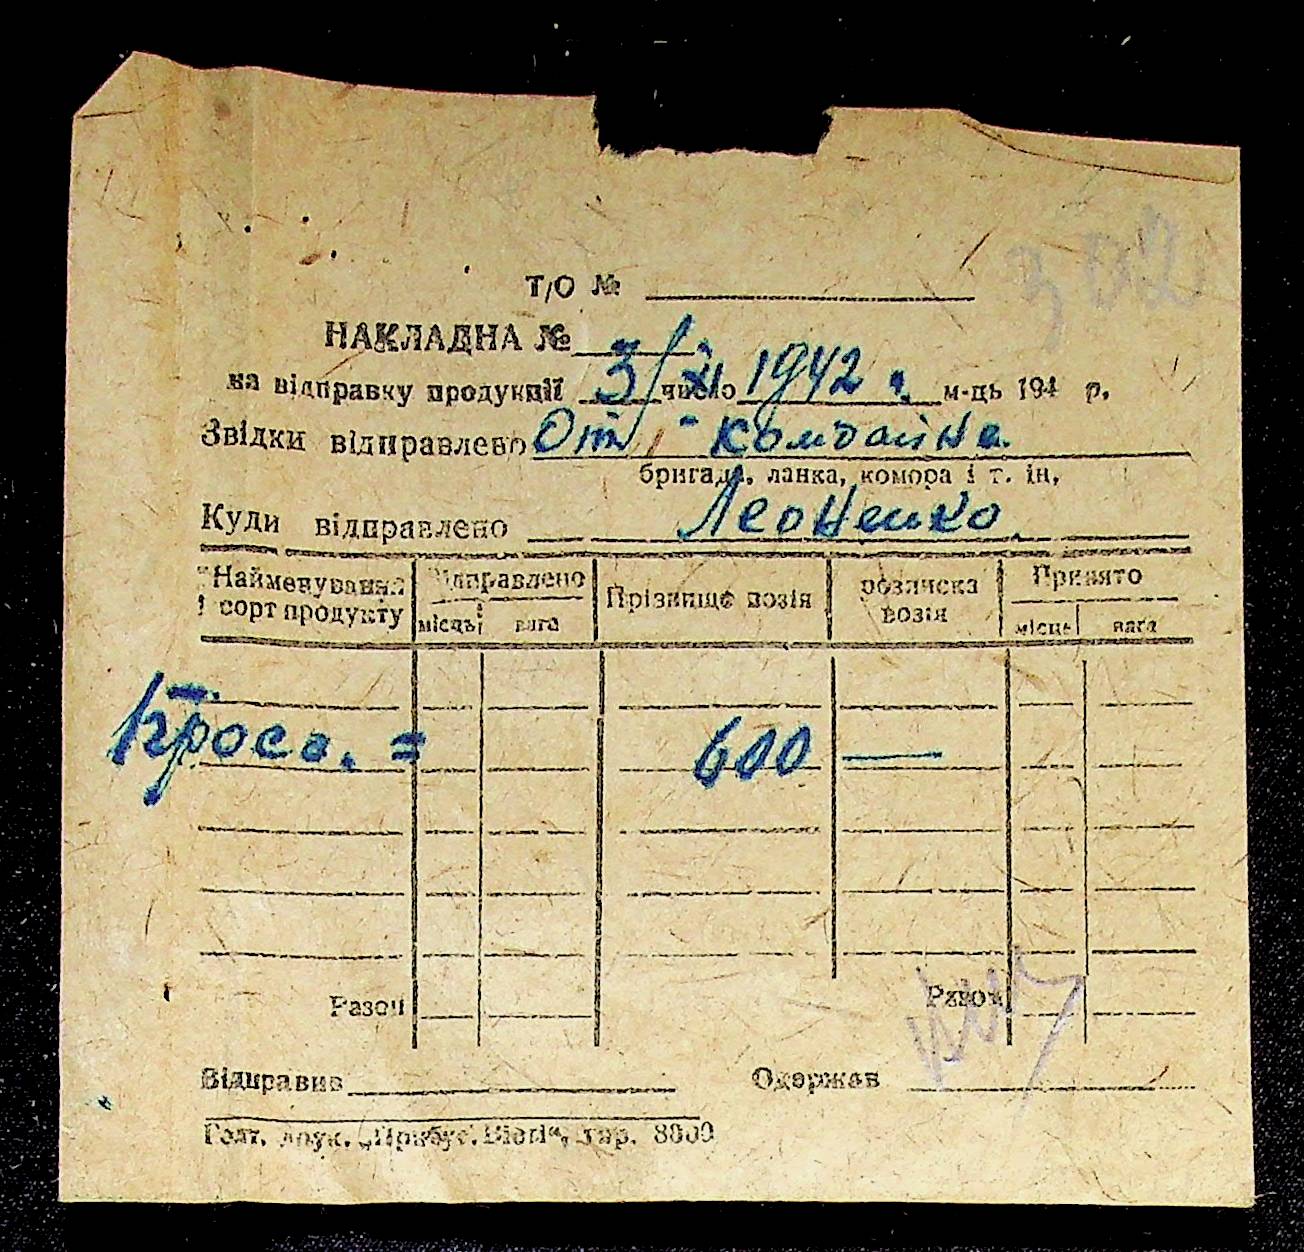 302
Т/О №
НАКЛАДНА №
на відправку продукції 3/XI число 1942 м-ць 194 р.
Звідки відправлено От комбайна
бригада, ланка, комора і т. ін,
Куди відправлено Леоненко
Найменування і сорт продукту Відправлено місць вага Прізвище возія розписка возія Принято місць вага
Просо. = 600 —
Разом Разом
Відправив Одержав
Голт. друк. „Прибуз. Вісті“, тир. 8000